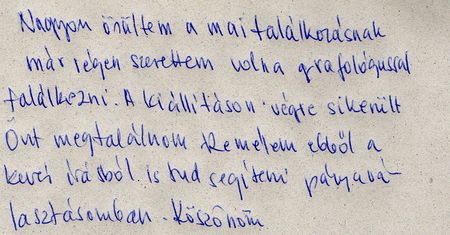 Nagyon örültem a mai találkozásnak
már régen szerettem volna grafológussal
találkozni. A kiállításon végre sikerült
Önt megtalálnom Remélem ebből a
kevés írásból is tud segíteni pályavá-
lasztásomban. Köszönöm